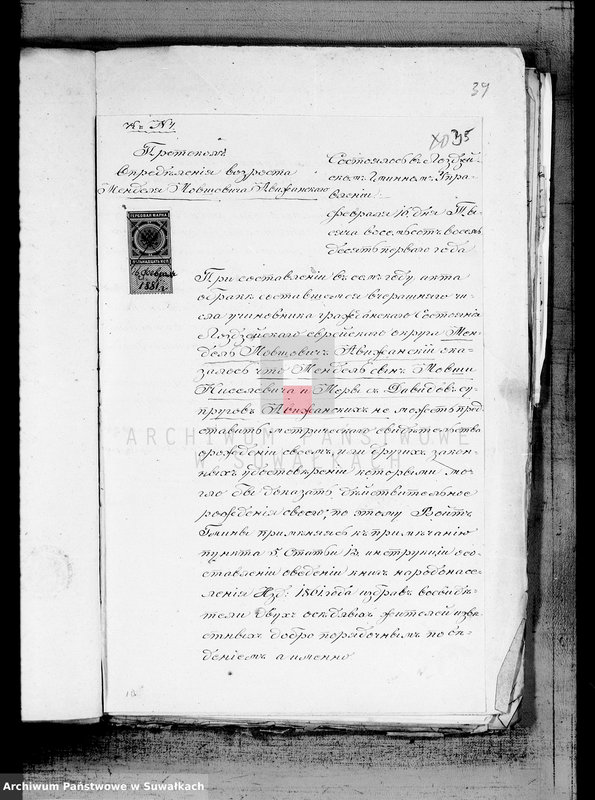 39
къ №1.
35
Протоколъ
Опредѣленія возраста
Менделя Мовшовича Авижанскаго
Состоялось въ Лоздзей-
скомъ Гминномъ Упра-
вленіи
февраля 16 дня Ты-
сяча восемьсотъ восемь
десятъ перваго года
ГЕРБОВАЯ МАРКА
16 февраля
1881 г.
При составленіи въ семъ году акта
о бракѣ составшемся вчерашняго чи-
сла у чиновника гражданскаго состоянія
Лоздзейскаго еврейскаго округа Мен-
дель Мовшовичъ Авижанскій ока-
залось что Мендель сынъ Мовши
Киселевича и Меры съ Давидовъ су-
пруговъ Авижанскихъ не можетъ пред
ставить метрическаго свидѣтельства
о рожденіи своемъ, или другихъ закон-
ныхъ удостовѣреній которыми мо-
гло бы доказать дѣйствительное
рожденія своего, по этому Войтъ
Гмины примѣняясь къ примѣчанію
пункта 5 Статьи 12 инструкціи о со-
ставленіи о веденіи книгъ народонасе-
ленія Изд: 1861 года избравъ во свидѣ-
тели двухъ осѣдлыхъ жителей извѣ-
стныхъ добропорядочнымъ пове-
деніемъ а именно
ARCHIWUM PAŃSTWOWE
W SUWAŁKACH
Archiwum Państwowe w Suwałkach